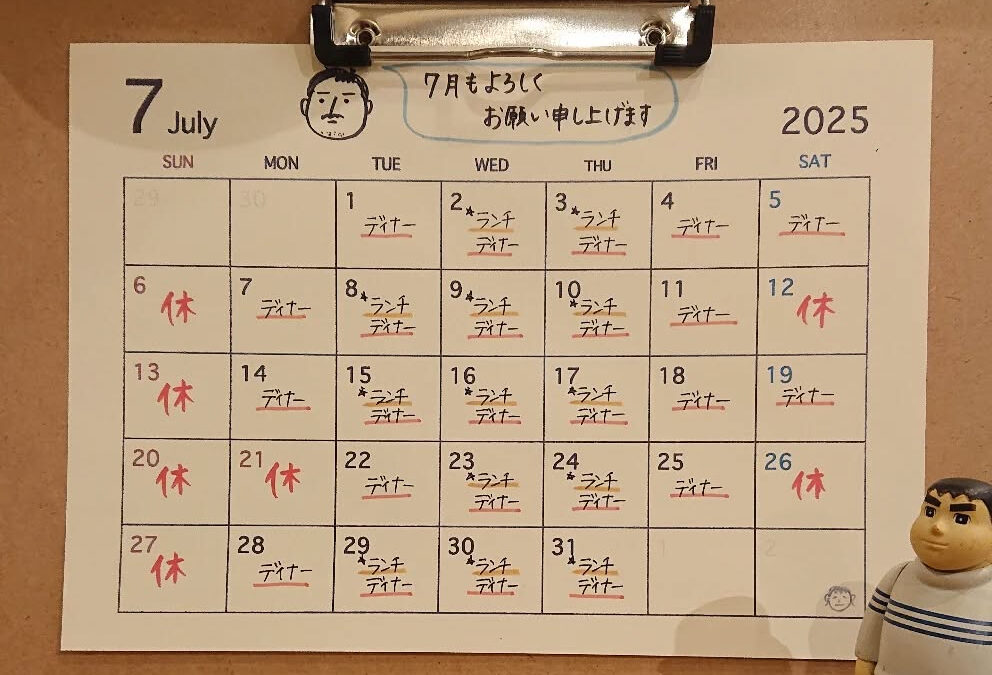 7月もよろしく
お願い申し上げます
7 July
2025
SUN MON TUE WED THU FRI SAT
29 30 1 2 3 4 5
ディナー ★ランチ ★ランチ ディナー ディナー
ディナー ディナー
6 7 8 9 10 11 12
休 ディナー ★ランチ ★ランチ ★ランチ ディナー 休
ディナー ディナー ディナー
13 14 15 16 17 18 19
休 ディナー ★ランチ ★ランチ ★ランチ ディナー ディナー
ディナー ディナー ディナー
20 21 22 23 24 25 26
休 休 ディナー ★ランチ ★ランチ ディナー 休
ディナー ディナー
27 28 29 30 31 1 2
休 ディナー ★ランチ ★ランチ ★ランチ
ディナー ディナー ディナー